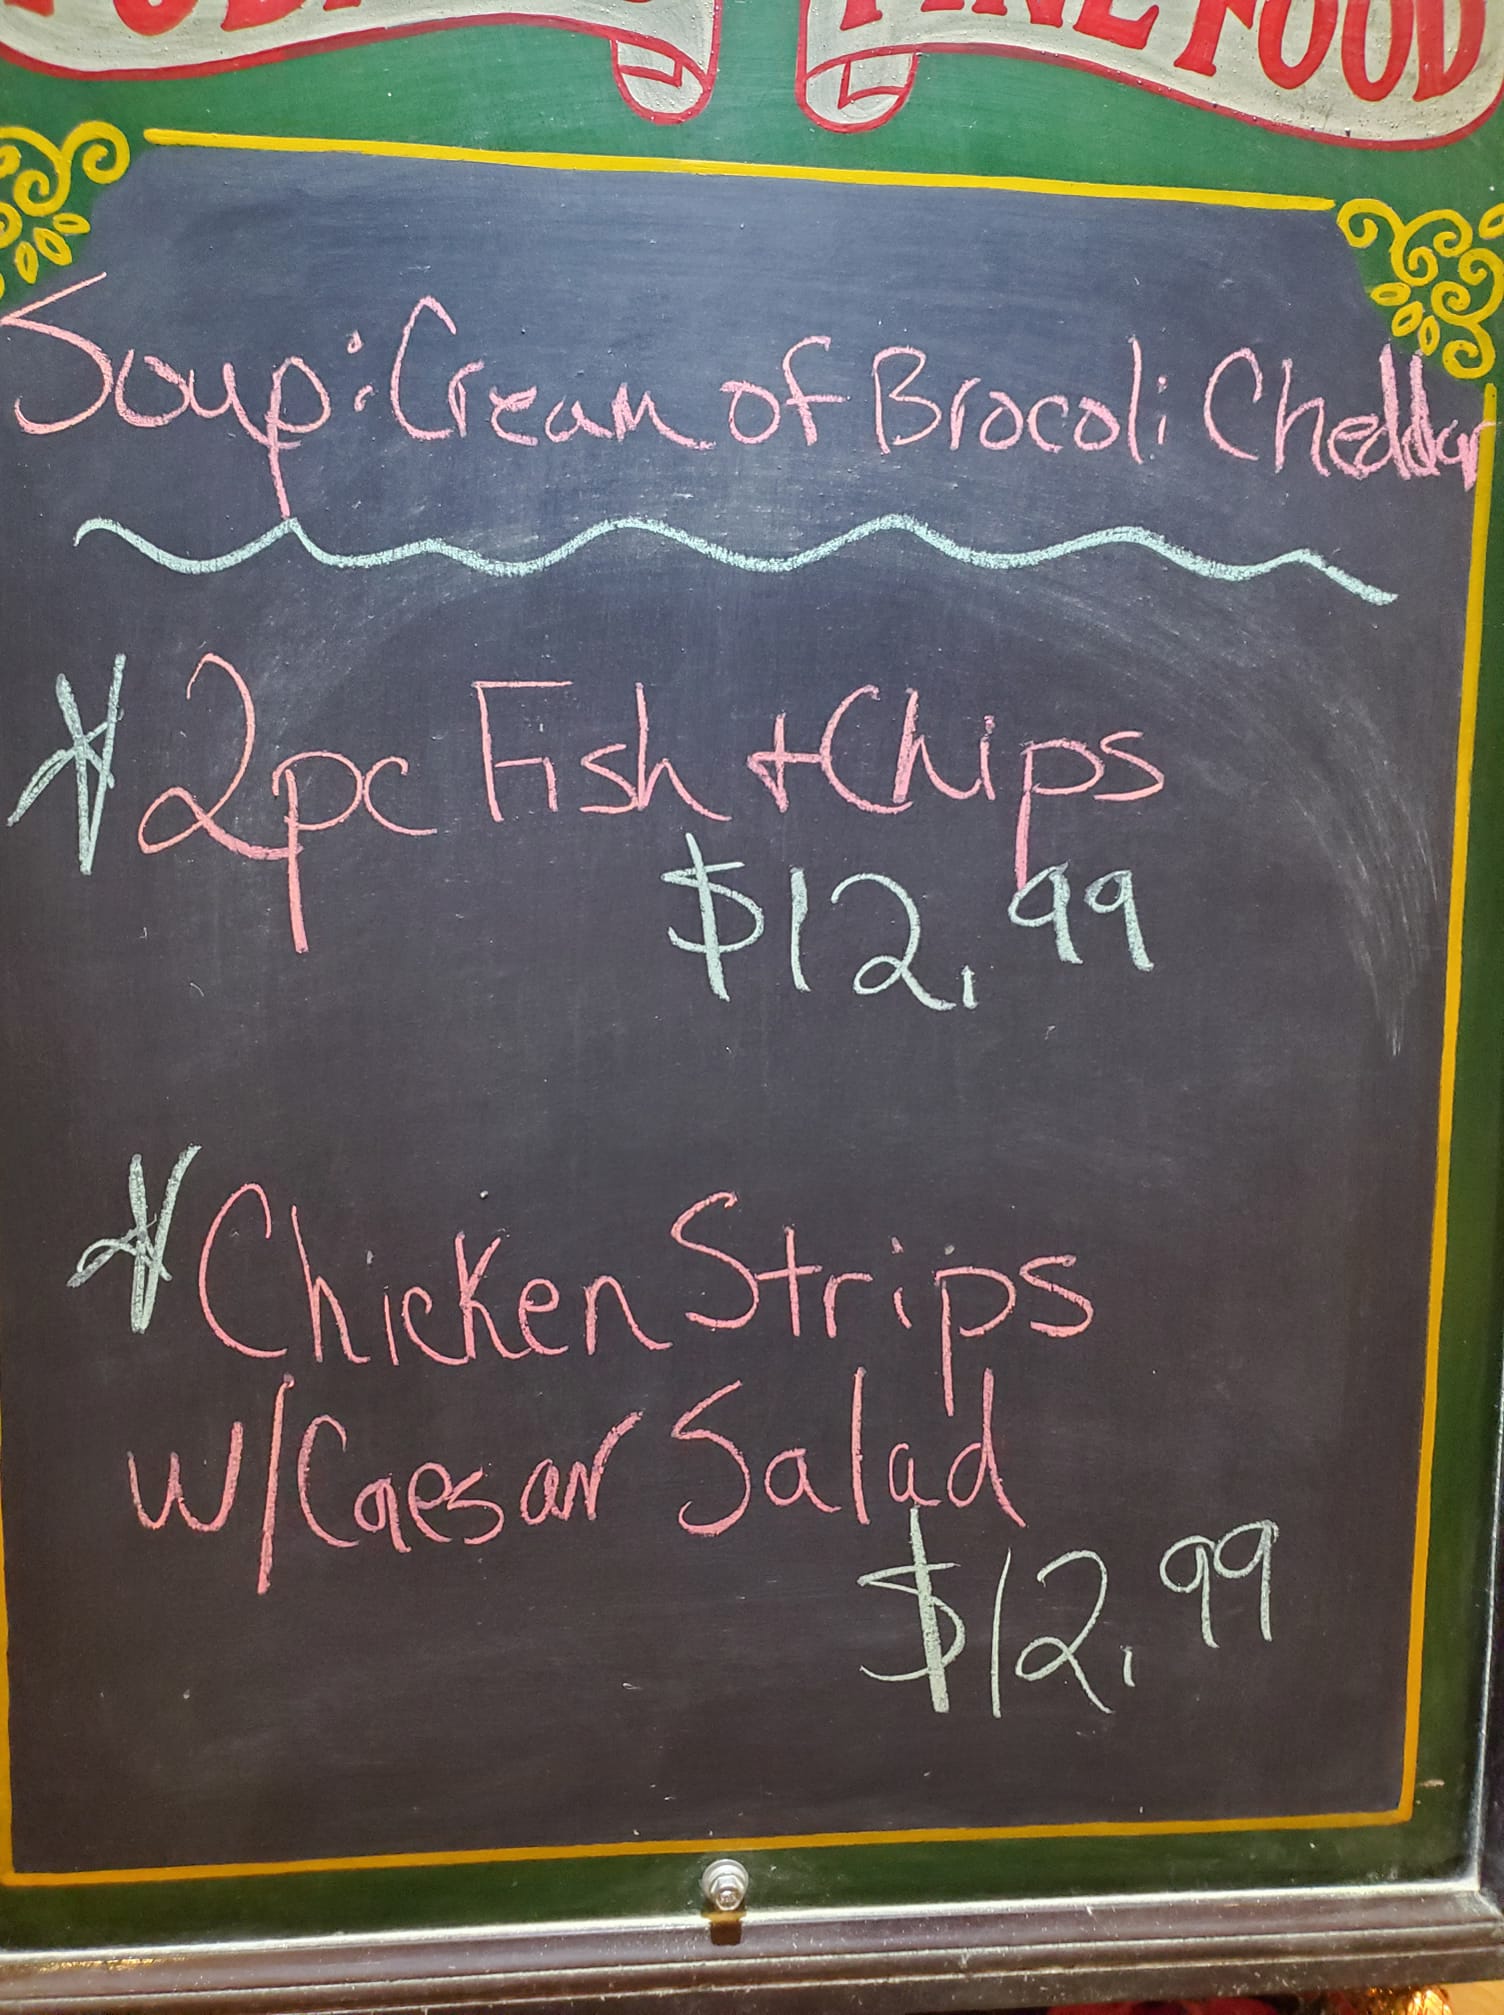 FINE FOOD
Soup: Cream of Brocoli Cheddar
2pc Fish + Chips
$12.99
Chicken Strips
w/Caesar Salad
$12.99